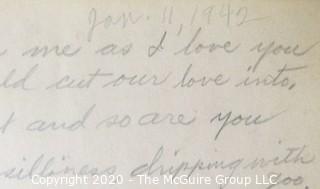 Jan. 11, 1942
me as I love you
ld cut our love into,
t and so are you
silliness dripping with
too.
Copyright © 2020 - The McGuire Group LLC